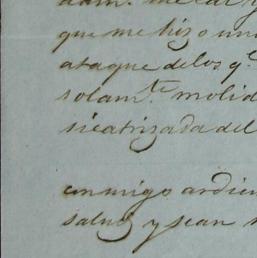 que me hizo un
ataque de los q.e
solam.te molid
sicatrizada del
enmigo ardien
salud y sean